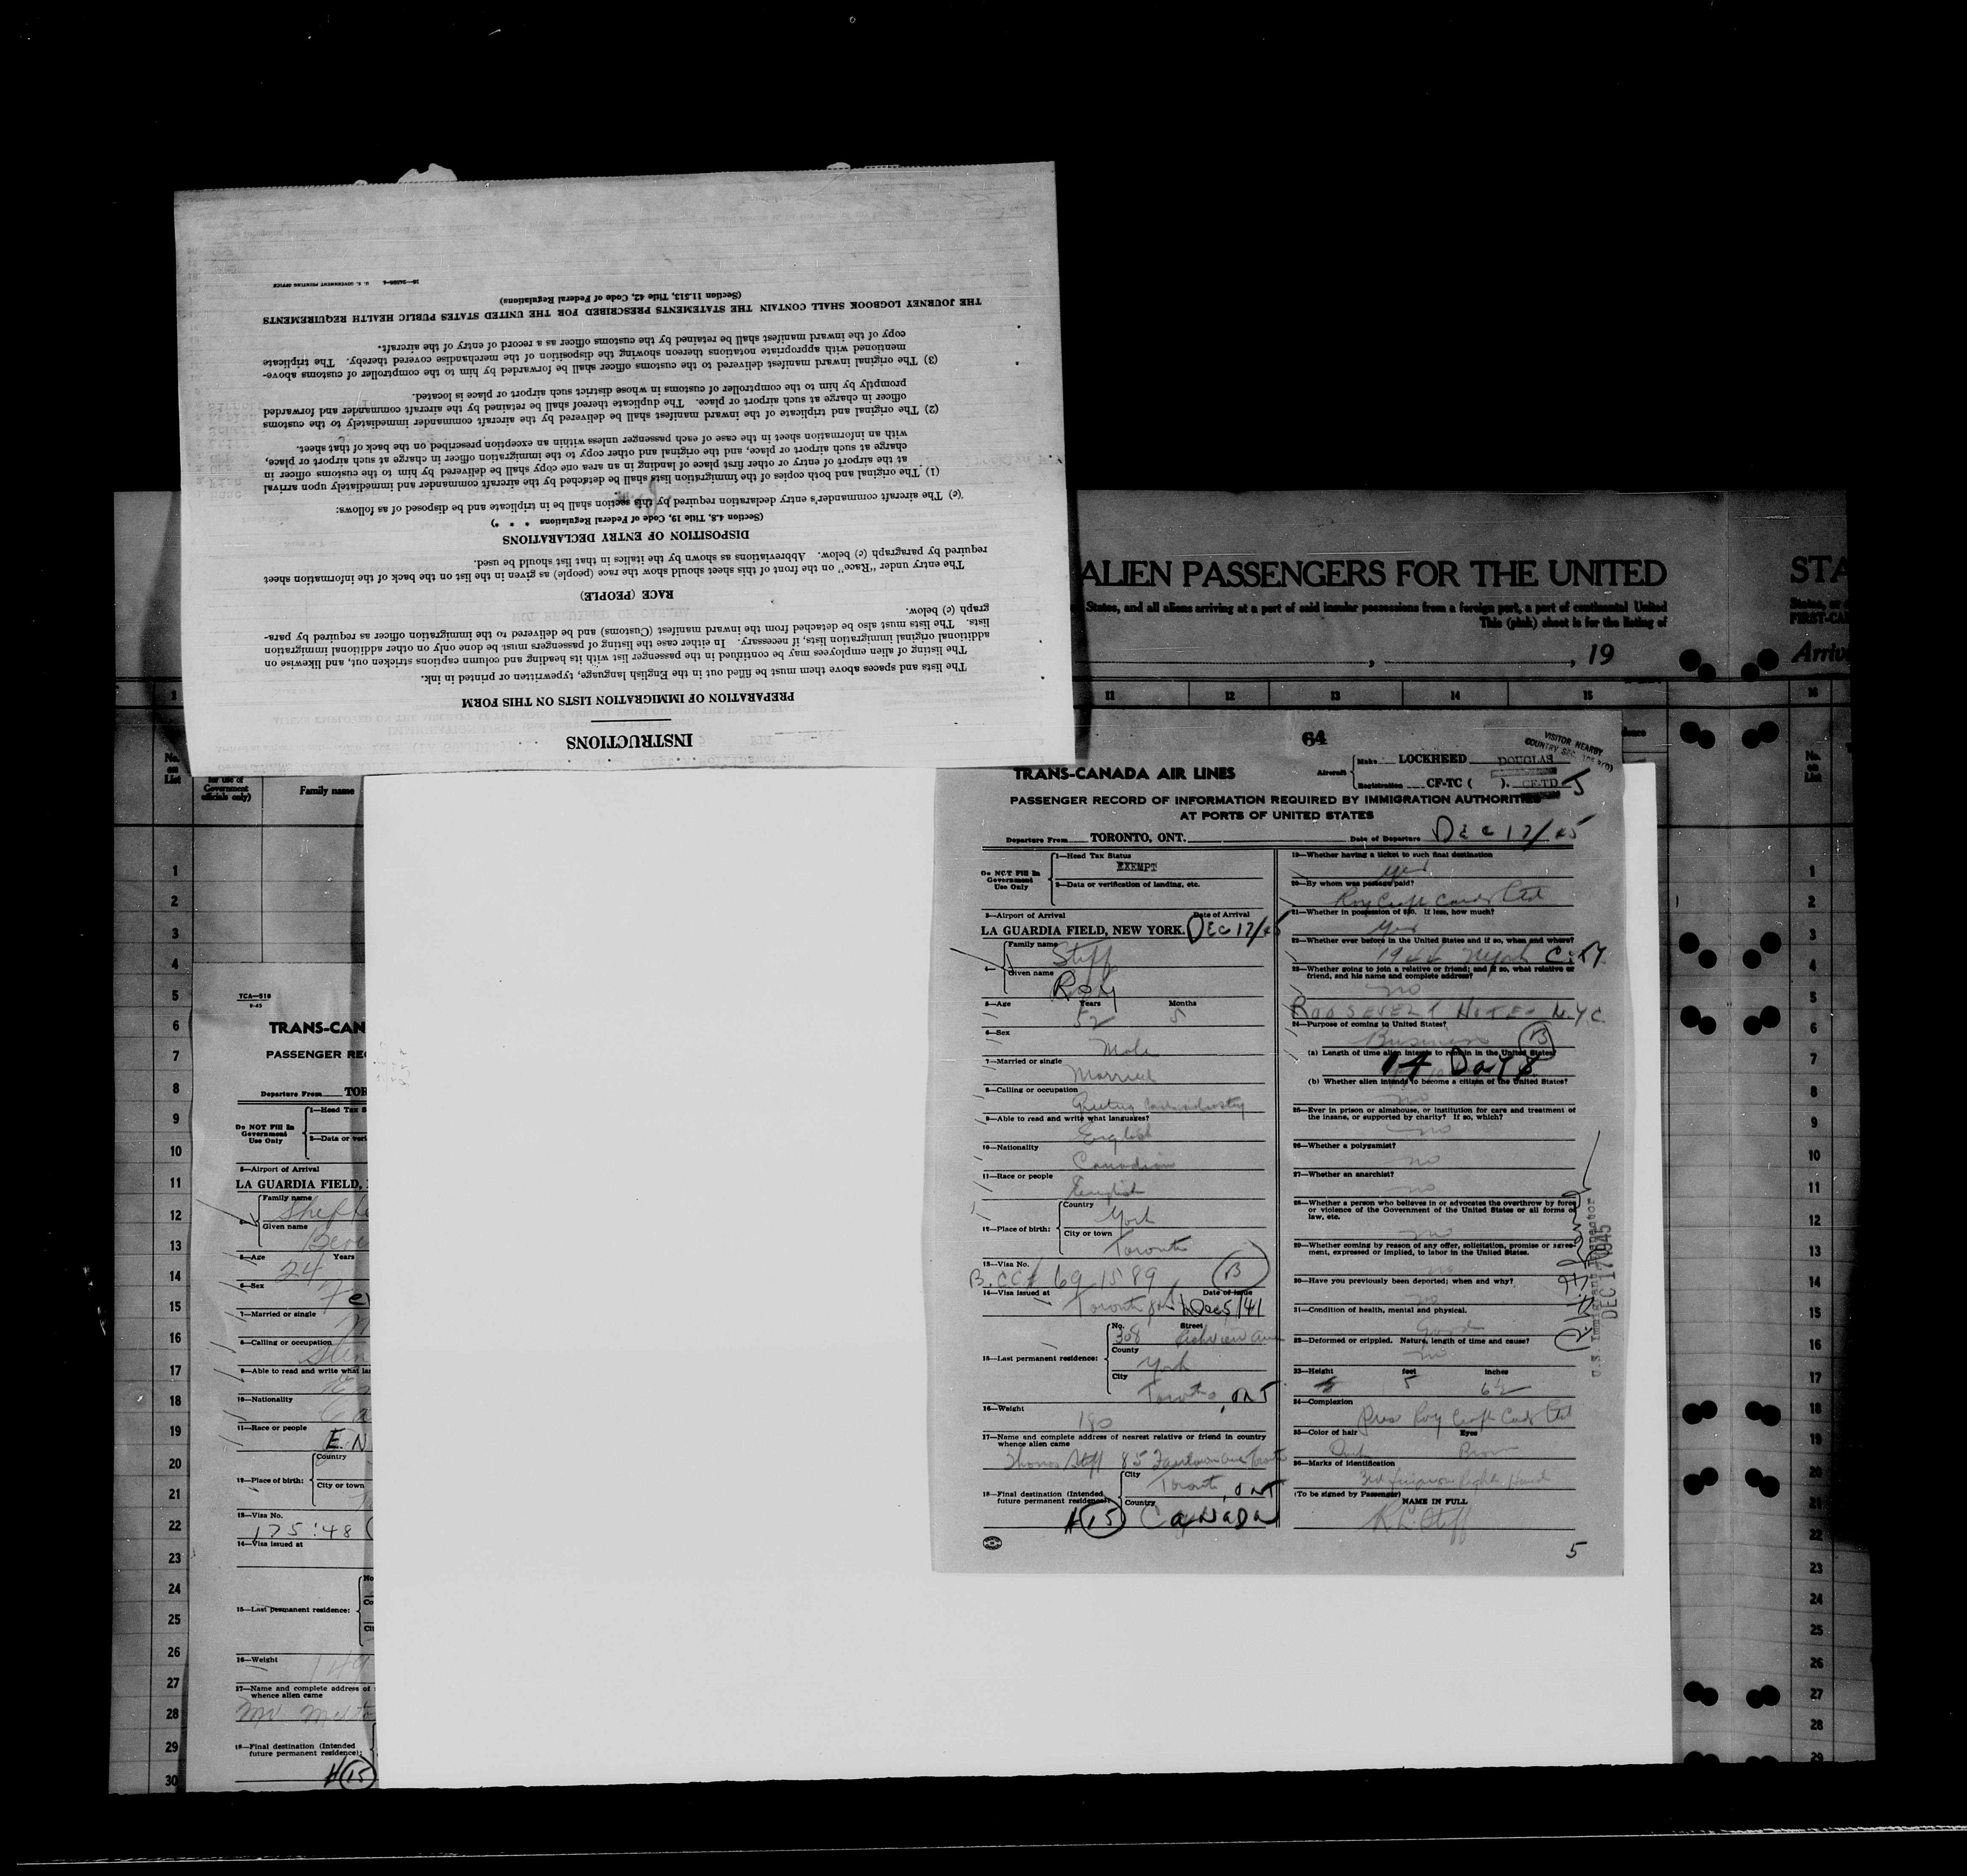 INSTRUCTIONS
PREPARATION OF IMMIGRATION LISTS ON THIS FORM
The lists and spaces above them must be filled out in the English language, typewritten or printed in ink.
The listing of alien employees may be continued in the passenger list with its heading and column captions stricken out, and likewise on
additional original immigration lists, if necessary. In either case the listing of passengers must be done only on other additional immigration
lists. The lists must also be detached from the inward manifest (Customs) and be delivered to the immigration officer as required by para-
graph (c) below.
RACE (PEOPLE)
The entry under "Race" on the front of this sheet should show the race (people) as given in the list on the back of the information sheet
required by paragraph (c) below. Abbreviations as shown by the italics in that list should be used.
DISPOSITION OF ENTRY DECLARATIONS
(Section 4.8, Title 19, Code of Federal Regulations * * *)
(c) The aircraft commander's entry declaration required by this section shall be in triplicate and be disposed of as follows:
(1) The original and both copies of the immigration lists shall be detached by the aircraft commander and immediately upon arrival
at the airport of entry or other first place of landing in an area one copy shall be delivered by him to the customs officer in
charge at such airport or place, and the original and other copy to the immigration officer in charge at such airport or place,
with an information sheet in the case of each passenger unless within an exception prescribed on the back of that sheet.
(2) The original and triplicate of the inward manifest shall be delivered by the aircraft commander immediately to the customs
officer in charge at such airport or place. The duplicate thereof shall be retained by the aircraft commander and forwarded
promptly by him to the comptroller of customs in whose district such airport or place is located.
(3) The original inward manifest delivered to the customs officer shall be forwarded by him to the comptroller of customs above-
mentioned with appropriate notations thereon showing the disposition of the merchandise covered thereby. The triplicate
copy of the inward manifest shall be retained by the customs officer as a record of entry of the aircraft.
THE JOURNEY LOGBOOK SHALL CONTAIN THE STATEMENTS PRESCRIBED FOR THE UNITED STATES PUBLIC HEALTH REQUIREMENTS
(Section 11.513, Title 42, Code of Federal Regulations)
U. S. GOVERNMENT PRINTING OFFICE
ALIEN PASSENGERS FOR THE UNITED
States, and all aliens arriving at a port of said insular possessions from a foreign port, a port of continental United
This (pink) sheet is for the listing of
, , 19
11 12 13 14 15
STA
Arriv
16
No. on List
Family name
1
2
3
4
5
6
7
8
9
10
11
12
13
14
15
16
17
18
19
20
21
22
23
24
25
26
27
28
29
30
TCA-518
9-45
TRANS-CAN
PASSENGER RE
Departure From TOR
1—Head Tax S
Do NOT Fill In
Government
Use Only
2—Data or veri
3—Airport of Arrival
LA GUARDIA FIELD,
Family name
Given name
5—Age Years
24
6—Sex
7—Married or single
8—Calling or occupation
9—Able to read and write what la
10—Nationality
11—Race or people
E N
12—Place of birth:
Country
City or town
13—Visa No.
175:48
14—Visa issued at
15—Last permanent residence:
16—Weight
149
17—Name and complete address of
whence alien came
18—Final destination (Intended
future permanent residence);
15
64
VISITOR NEARBY
TRANS-CANADA AIR LINES
Aircraft
Make LOCKHEED DOUGLAS
Registration CF-TC ( ). CF-TD J
PASSENGER RECORD OF INFORMATION REQUIRED BY IMMIGRATION AUTHORITIES
AT PORTS OF UNITED STATES
Departure From TORONTO, ONT. Date of Departure DEC 17/45
Do NOT Fill In
Government
Use Only
1—Head Tax Status
EXEMPT
2—Data or verification of landing, etc.
3—Airport of Arrival Date of Arrival
LA GUARDIA FIELD, NEW YORK. DEC 17/45
Family name Stiff
4—
Given name Roy
5—Age Years Months
52 5
6—Sex
Male
7—Married or single
Married
8—Calling or occupation
Greeting Card industry
9—Able to read and write what languages?
English
10—Nationality
Canadian
11—Race or people
English
12—Place of birth:
Country York
City or town Toronto
13—Visa No.
B.CC# 691589 B
14—Visa issued at Date of Issue
Toronto Dec 5/41
15—Last permanent residence:
No. Street
308
County
York
City
Toronto, ONT
16—Weight
180
17—Name and complete address of nearest relative or friend in country
whence alien came
Thomas Stiff 85 Toronto
18—Final destination (Intended
future permanent residence);
City Toronto, ONT
Country CANADA
15
19—Whether having a ticket to such final destination
yes
20—By whom was passage paid?
Roy Craft Cards Ltd
21—Whether in possession of $50. If less, how much?
yes
22—Whether ever before in the United States and if so, when and where?
1944 New York City
23—Whether going to join a relative or friend; and if so, what relative or
friend, and his name and complete address?
no
ROOSEVELT HOTEL N.Y.C.
24—Purpose of coming to United States?
Business B
(a) Length of time alien intends to remain in the United States?
14 DAYS
(b) Whether alien intends to become a citizen of the United States?
no
25—Ever in prison or almshouse, or institution for care and treatment of
the insane, or supported by charity? If so, which?
no
26—Whether a polygamist?
no
27—Whether an anarchist?
no
28—Whether a person who believes in or advocates the overthrow by force
or violence of the Government of the United States or all forms of
law, etc.
no
29—Whether coming by reason of any offer, solicitation, promise or agree-
ment, expressed or implied, to labor in the United States.
no
30—Have you previously been deported; when and why?
no
31—Condition of health, mental and physical.
Good
32—Deformed or crippled. Nature, length of time and cause?
no
33—Height feet inches
5 6½
34—Complexion
Pres Roy Craft Cards Ltd
35—Color of hair Eyes
Dark Brown
36—Marks of identification
(To be signed by Passenger)
NAME IN FULL
U.S. Immigrant Inspector
DEC 17 1945
5